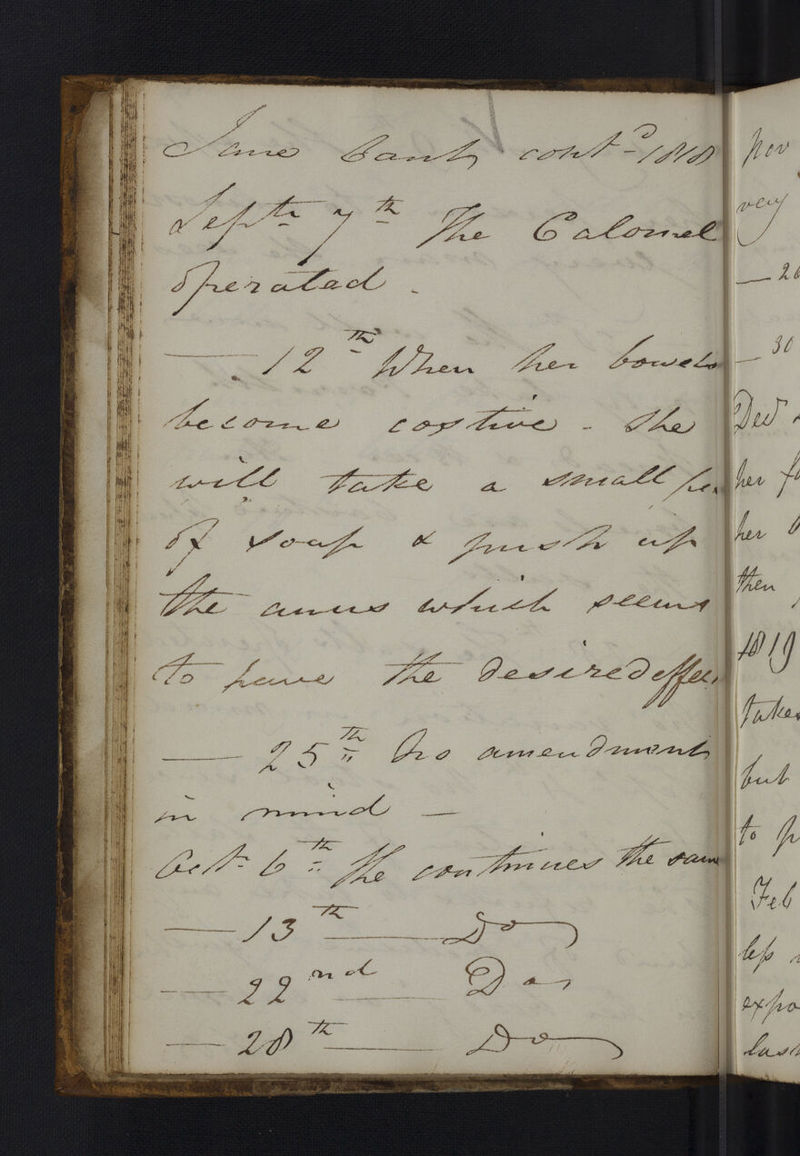 Jane Banks contd 1818
Septr 7th The Calomel
operated -
— 12th When her bowels
become costive - she
will take a small
of soap & push up
the anus which seems
to have the desired effect
— 25th No amendment
in mind —
Octr 6th She continues the same
— 13th — Do
— 22nd — Do
— 28th — Do
very
— 20
— 30
Decr
her
her
then
1819
takes
but
to
Feb
less
expo
last